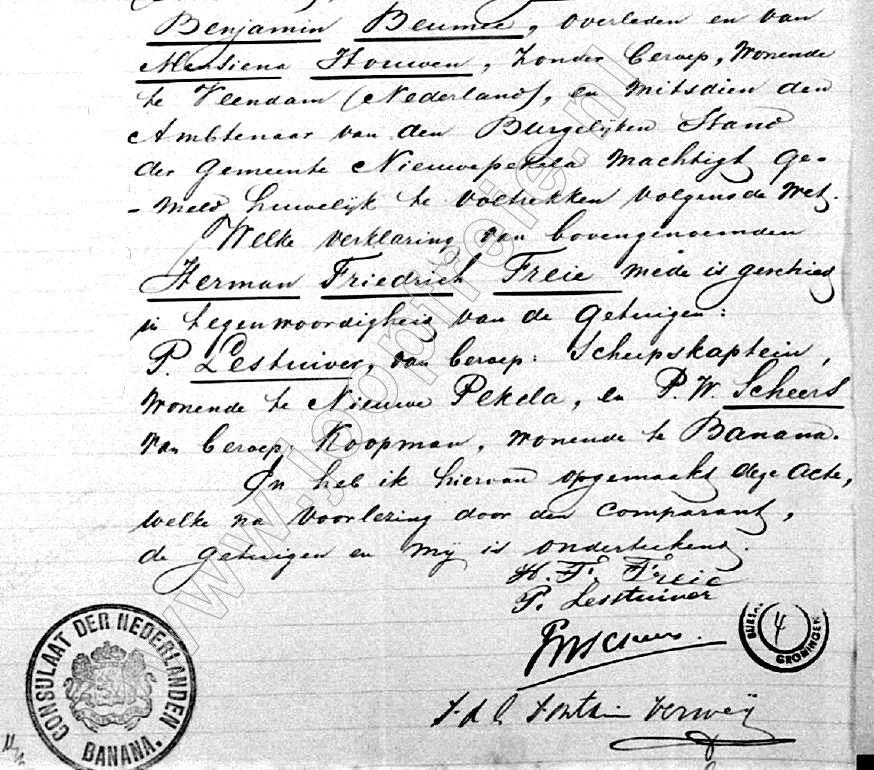 Benjamin Beumee, overleden en van
Mensiena Houwen, zonder beroep, Wonende
te Veendam (Nederland), en mitsdien den
Ambtenaar van den Burgelijken Stand
der Gemeente Nieuwepekela machtigt ge-
- meld huwelijk te voltrekken volgens de Wet.
Welke verklaring van bovengenoemden
Herman Friedrich Freie mede is geschied
in tegenwoordigheid van de getuigen:
P. Lestuiver, van beroep: Scheepskaptein,
wonende te Nieuwe Pekela, en P. W. Scheers
van beroep: Koopman, wonende te Banana.
En heb ik hiervan opgemaakt deze acte,
welke na voorlezing door den comparant,
de getuigen en mij is onderteekend.
H. F. Freie
P. Lesstuiver
PWScheers.
Fontain Verwey
CONSULAAT DER NEDERLANDEN
BANANA.
4
GRONINGEN
www.joopfreie.nl